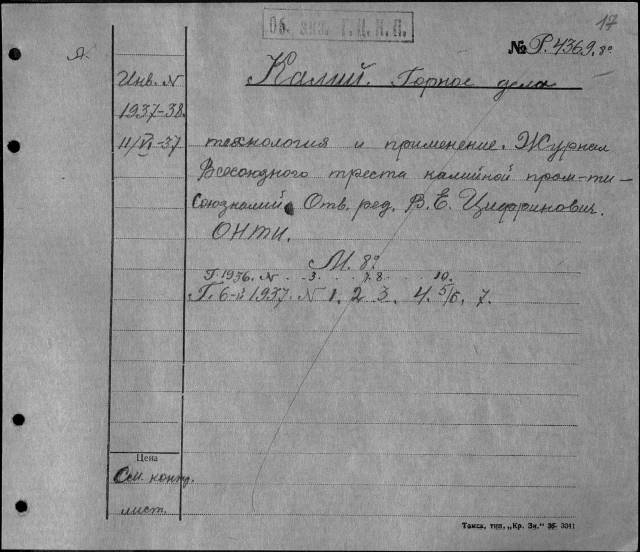 Об. экз. Г.Ц.К.П.
17
Я.
№ Р.4369. 8º
Калий. Горное дело
Инв. N
1937-38.
11/VI-37
технология и применение. Журнал
Всесоюзного треста калийной пром-ти -
Союзкалий. Отв. ред. В. Е. Цифринович.
ОНТИ.
М. 8º
Г. 1936. N . . 3. . . 7. 8. . 10.
Г. 6-й 1937. N 1. 2. 3. 4. 5/6. 7.
Цена
См. контр.
лист.
Тамб. тип. „Кр. Зн." 36 3341